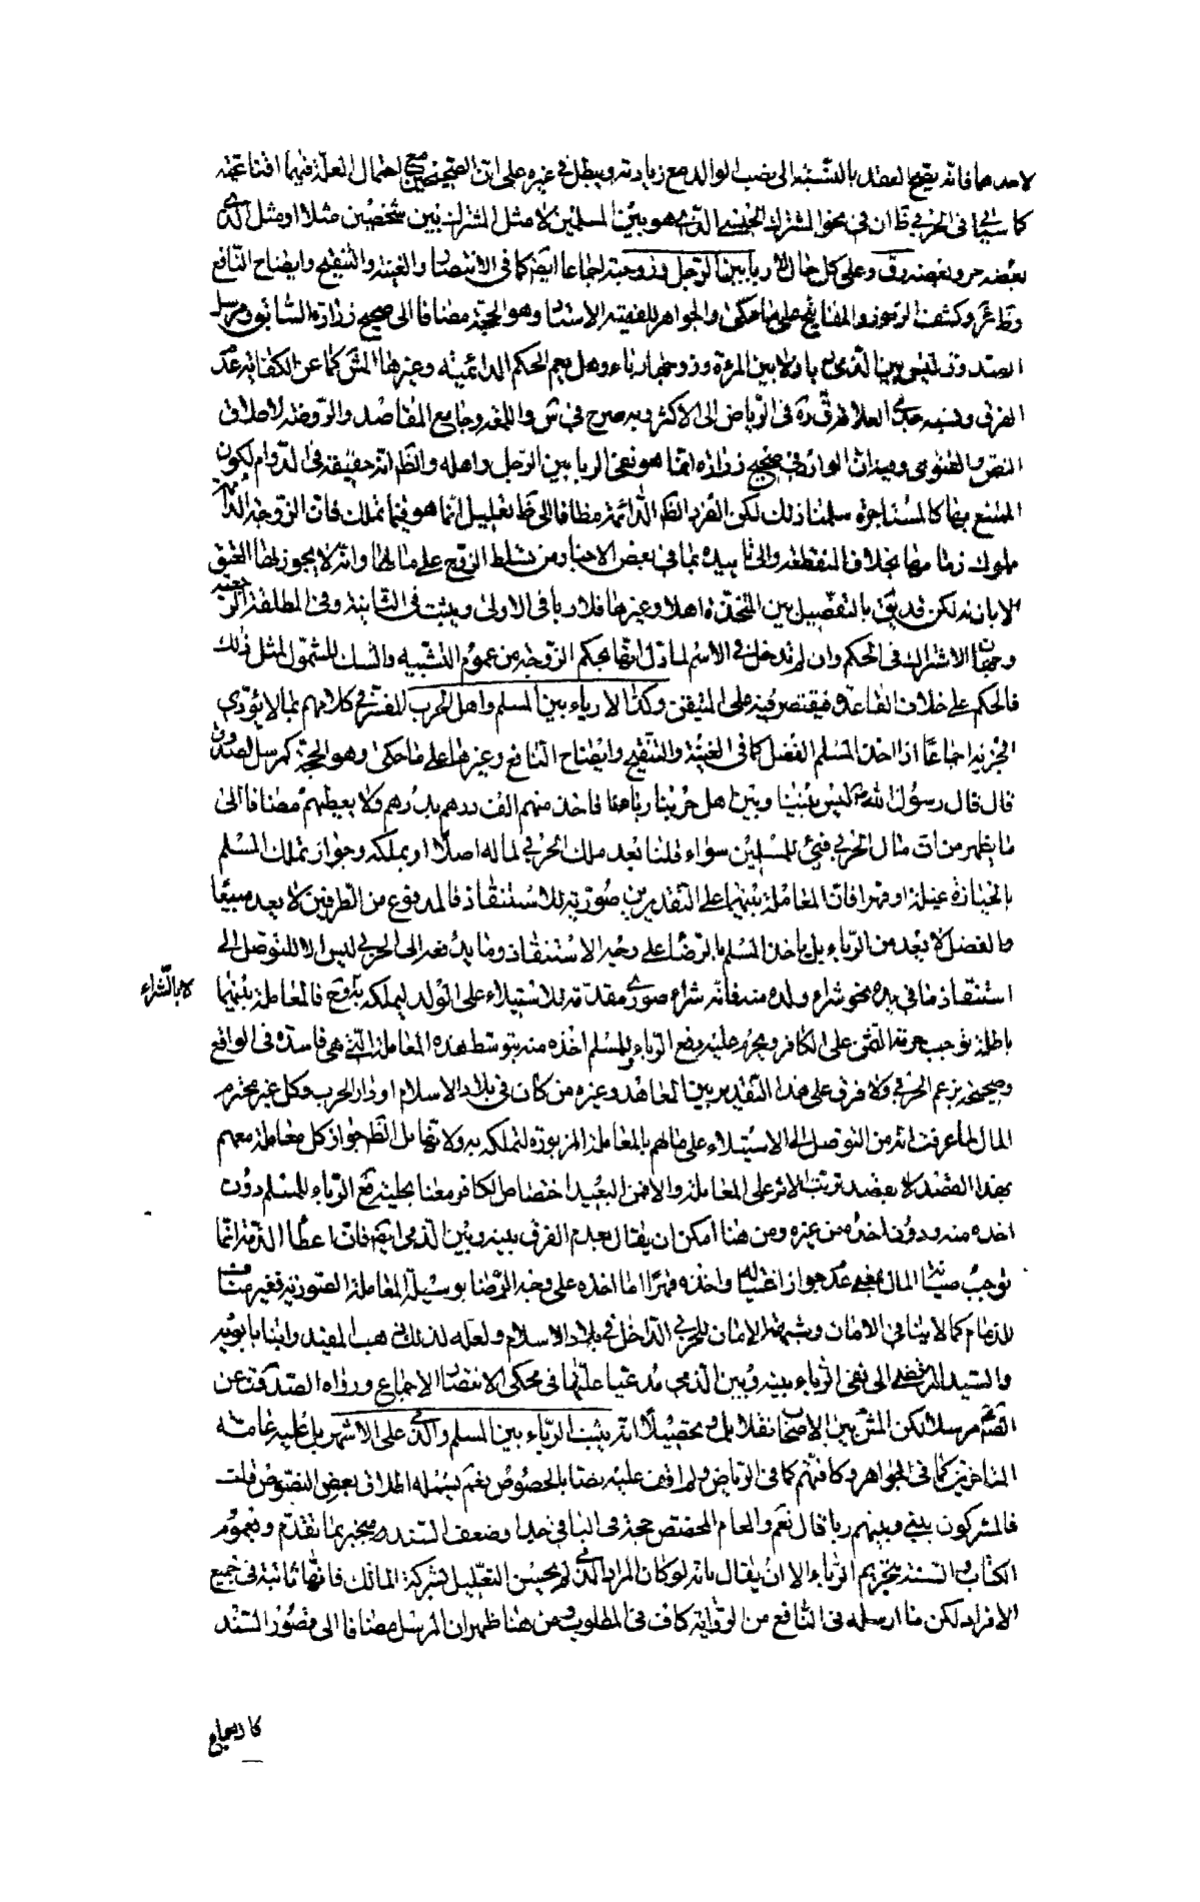 لاحدهما فانه يصح العقد بالنسبة الى نصيب الوالد مع زيادته ويبطل في غيره على اتن الصحيحين مع احتمال العدم فيهما افتاعته
كما سيأتي في الحربي ظ ان في نحو المشترك الخمسي الذي هو بين المسلمين لا مثل المشترك بين شخصين مثلا او مثل الذي
بعضه حر وبعضه رق وعلى كل حال لا ربا بين الرجل وزوجته اجماعا ايضا كما في الانتصار والغنية والتنقيح وايضاح النافع
وظ غير وكشف الرموز والمفاتيح على ما حكى والجواهر للفقيه الاستاد وهو الحجة مضافا الى صحيح زرارة السابق ومرسل
الصدوق ليس بين الذمي ولا بين المرءة وزوجها رباء وهل يعم الحكم الدائمة وغيرها المش كما عن الكفاية عدم
الفرق ونسبه جدي العلامة قده في الرياض الى الاكثر وبه صرح في ش واللمعة وجامع المقاصد والروضة لاطلاق
النص والفتوى وفيه ان الوارد في صحيح زرارة انما هو نفي الربا بين الرجل واهله والظ انه حقيقة في الدوام لكون
المتمتع بها كالمستاجرة سلمنا ذلك لكن الفرد الظ الدائمة مضافا الى ظ تعليل انما هو فيما تملك فان الزوجة الدائمة
مملوك زمامها بخلاف المنقطعة والى تاييده بما في بعض الاخبار من تسلط الزوج على مالها وانه لا يجوز لها العتق
الا باذنه لكن قد يق بالتفصيل بين المتخذة اهلا وغيرها فلا ربا في الاولى ويثبت في الثانية وفي المطلقة الرجعية
وجهان الاشتراك في الحكم وان لم تدخل في الاسم لما دل انها بحكم الزوجة من عموم التشبيه والشك للشمول لمثل ذلك
فالحكم على خلاف القاعدة فيقتصر فيه على المتيقن وكذا لا رباء بين المسلم واهل الحرب المفسر في كلامهم بما لا يؤدي
الجزية اجماعا اذا اخذ المسلم الفضل كما في الغنية والتنقيح وايضاح النافع وغيرها على ما حكى وهو الحجة كمرسل الصدوق
قال قال رسول الله ص ليس بيننا وبين اهل حربنا ربا فانا ناخذ منهم الف درهم بدرهم ولا نعطيهم مضافا الى
ما يظهر من ان مال الحربي فيئ للمسلمين سواء قلنا بعد ملك الحربي لماله اصلا او بملكه وجواز تملك المسلم
بالحيازة غيلة او قهرا فان المعاملة بينهما على التقديرين صورية للاستنقاذ فالمدفوع من الطرفين لا يعد مبيعا
والفضل لا يعد من الرباء بل ياخذ المسلم بالرضا على وجه الاستنقاذ وما يدفعه الى الحربي ليس الا للتوصل الى
استنقاذ ما في يده نحو شراء ولده منه فانه شراء صوري مقدمة للاستيلاء على الولد ليملكه به وح فالمعاملة بينهما
لا بالشراء
باطلة توجب حرمة الثمن على الكافر ويحرم عليه دفع الرباء وللمسلم اخذه منه بتوسط هذه المعاملة التي هي فاسدة في الواقع
وصحيحة بزعم الحربي ولا فرق على هذا التقدير بين المعاهد وغيره من كان في بلاد الاسلام او دار الحرب وكل غير محترم
المال لما عرفت انه من التوصل الى الاستيلاء على مالهم بالمعاملة المزبورة لتملكه به ولا تعامل الظ جواز كل معاملة معهم
بهذا القصد لا بقصد ترتب الاثر على المعاملة والا فمن البعيد اختصاص الكافر معنا بحلية دفع الرباء للمسلم دون
اخذه منه ودون اخذه من غيره ومن هنا امكن ان يقال بعدم الفرق بينه وبين الذمي ايضا فان اعطاء الذمة انما
توجب صيانة المال عدم جواز اغتياله واخذه قهرا اما اخذه على وجه الرضا بوسيلة المعاملة الصورية فغير مناف
للذمام كما لا ينافي الامان وشبهة الامان للحربي الداخل في بلاد الاسلام ولعله لذلك ذهب المفيد وابنا بابويه
والسيد المرتضى الى نفي الرباء بينه وبين الذمي مدعيا عليها في محكي الانتصار الاجماع ورواه الصدوق عن
الصم مرسلا لكن المش بين الاصحاب نقلا بل وتحصيلا انه يثبت الرباء بين المسلم والذمي على الاشهر بل عليه عامة
المتاخرين كما في الجواهر وكافتهم كما في الرياض ولم اقف عليه نصا بالخصوص نعم يشمله اطلاق بعض النصوص قلت
فالمشركون بيني وبينهم ربا قال نعم والعام المخصص حجة في الباقي جدا وضعف السند منجبر بما تقدم وبعموم
الكتاب والسنة بتحريم الرباء الا ان يقال بانه لو كان المراد الذمي لم يحسن التعليل بشركة المالك فانها ثابتة في جميع
الافراد لكن ما ارسله في النافع من الرواية كاف في المطلوب ومن هنا ظهر ان المرسل مضافا الى قصور السند